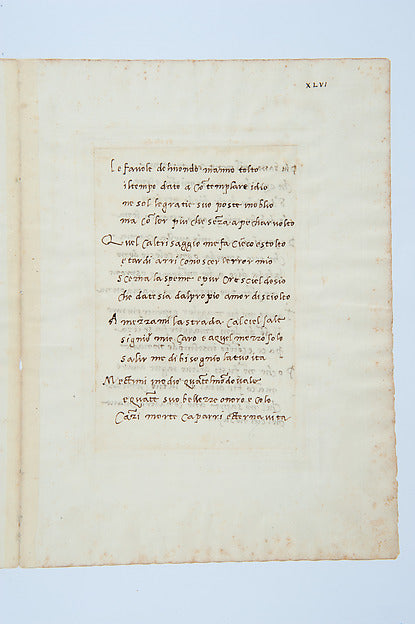 XLVI
Le fauole del mondo manno tolto
il tempo dato a cō templare idio
ne sol le gratie suo poste inoblio
ma cō lor piu che senza a pechar uolto
Quel caltri saggio me fa cieco e stolto
e tardi a rri conoscer lerror mio
scema la speme e pur cresciel desio
che da te sia dal propio amor disciolto
A mezzami la strada cal ciel sale
signior mie caro e a quel mezzo solo
salir me di bisognio la tuo ita
Mettimi in odio quāte lmōdo uale
e quātē suo bellezze onoro e colo
cāzi morte caparri etterna uita